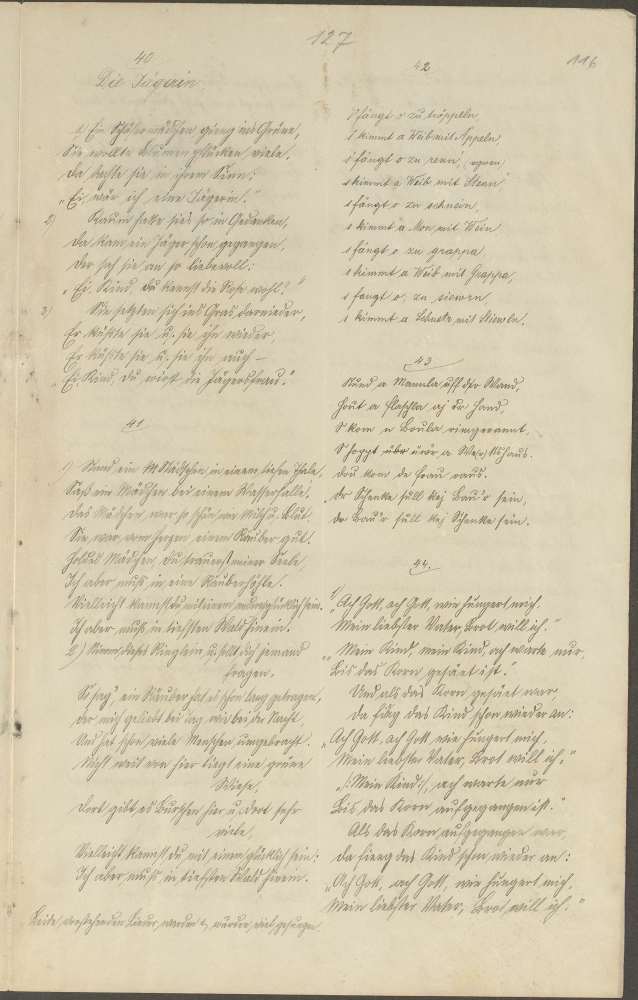 127
116
40
Die Jägerin.
1) Ein Schäfermädchen gieng ins Grüne,
Sie wollte Blumen pflücken viele.
Da dachte sie in ihrem Sinn:
"Ei, wär' ich eine Jägerin!"
2) Kaum hatte sie's so in Gedanken,
Da kam ein Jäger schon gegangen.
Der sah sie an so liebevoll:
"Ei, Kind, du kennst die Rose wohl?"
3) Sie setzten sich ins Gras darnieder,
Er küßte sie u. sie ihn wieder,
Er küßte sie u. sie ihn auch –
"Ei, Kind, du wirst die Jägersfrau."
41
1) Stund ein Mädchen in einem tiefen Thale,
Saß ein Mädchen bei einem Wasserfalle,
Das Mädchen war so schön wie Milch u. Blut.
Sie war vom Herzen einem Räuber gut.
Holdes Mädchen, du trauenst meiner Seele,
Ich aber muß in eine Räuberhöhle.
Vielleicht kannst du mit einem glücklich sein.
Ich aber muß in tiefsten Wald hinein.
2) Nimm dies Ringlein u. sollt dich jemand
fragen,
So sag', ein Räuber hat es schon lang getragen,
der mich geliebt bei Tag wie bei der Nacht,
Und hat schon viele Menschen umgebracht.
Nicht weit von hier liegt eine grüne
Wiese,
Dort gibt es Burschen hier u. dort sehr
viele,
Vielleicht kannst du mit einem glücklich sein:
Ich aber muß in tiefsten Wald hinein.
Beide vorstehenden Lieder werden viel gesungen.
42
s fängt o zu tröppeln,
s kimmt a Weib mit Äppeln,
s fängt o zu renn, (regnen)
s kimmt a Weib mit Steen
s fängt o zu schnein,
s kimmt a Mon mit Wein
s fängt o zu grappa
s kimmt a Weib mit Grappa,
s fängt o zu siewen,
s kimmt a Schneke mit Stiewln.
43
Stund a Mannla uff der Wand,
Hout a Flaschla aj dr Hand,
S kom a Boula rimgerannt,
dou kom de Frau raus.
dr Schenke sull kej Bau'r sein,
dr Bau'r sull kej Schenke sein.
44.
1) "Ach Gott, ach Gott, wie hungert mich.
Mein liebster Vater, Brot will ich."
"Mein Kind, mein Kind, ach warte nur,
Bis das Korn gesäet ist."
Und als das Korn gesäet war,
Da fing das Kind schon wieder an:
"Ach Gott, ach Gott wie hungert mich,
Mein liebster Vater, Brot will ich."
"/:Mein Kind:/, ach warte nur
Bis das Korn aufgegangen ist."
Als das Korn aufgegangen war,
da fieng das Kind schon wieder an:
"Ach Gott, ach Gott, wie hungert mich,
Mein liebster Vater, Brot will ich."